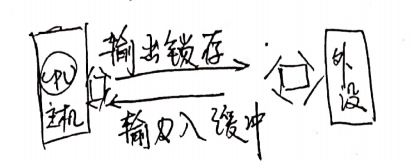 CPU
主机
输出锁存
输入缓冲
外
设